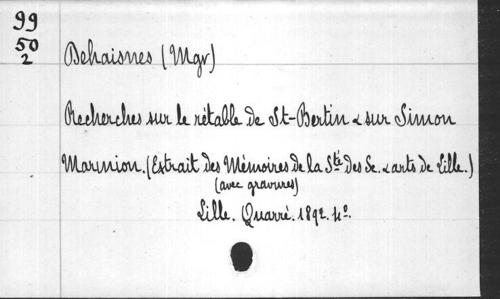 99
50
2
Dehaisnes (Mgr)
Recherches sur le rétable de St-Bertin & sur Simon
Marmion. (Extrait des Mémoires de la Sté des Sc. & arts de Lille.)
(avec gravures)
Lille. Quarré. 1892. 4º.